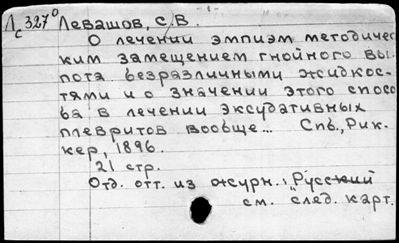 Л с 327⁰ Левашов, С.В.
О лечении эмпиэм методичес
ким замещением гнойного вы-
пота безразличными жидкос-
тями и о значении этого спосо
ба в лечении эксудативных
плевритов вообще... Спб., Рик-
кер, 1896.
21 стр.
Отд. отт. из журн. "Русский
см. след. карт.